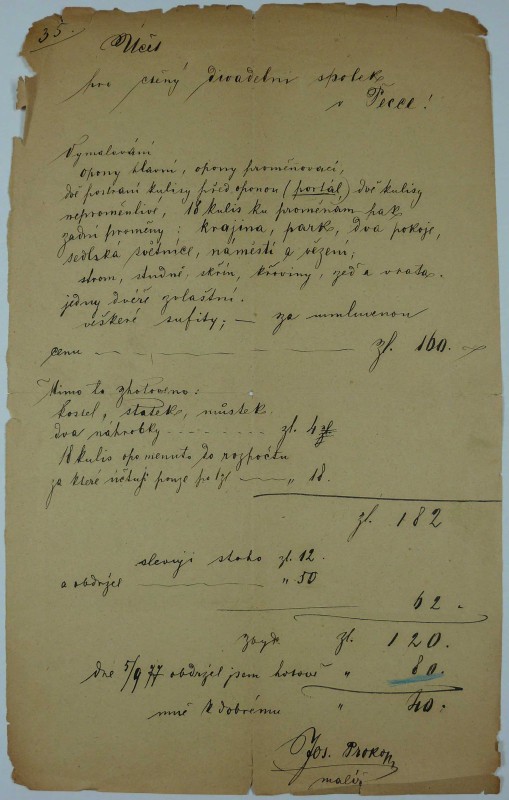 35
Účet
pro ctěný divadelní spolek
v Pecce!
Vymalování
opony hlavní, opony proměňovací,
dvě postraní kulisy před oponou (portál) dvě kulisy
neproměnlivé, 18 kulis ku proměnám pak
zadní proměny: krajina, park, dva pokoje,
sedlská světnice, náměstí a vězení;
strom, studně, skřín, křoviny, zeď a vrata.
jedny dvéře zvlaštní.
veškeré sufity; — za umluvenou
cenu — zl. 160.
Mimo to zhotoveno:
kostel, statek, můstek.
dva náhrobky - - - - - - - - zl. 4
18 kulis opomenuto do rozpočtu
za které účtuji pouze po 1 zl — „ 18.
zl. 182
slevuji s toho zl. 12
a obdržel — „ 50
62.
zbyk zl. 120.
dne 5/9 77 obdržel jsem hotově „ 80.
mně k dobrému „ 40.
Jos. Prokop,
malíř